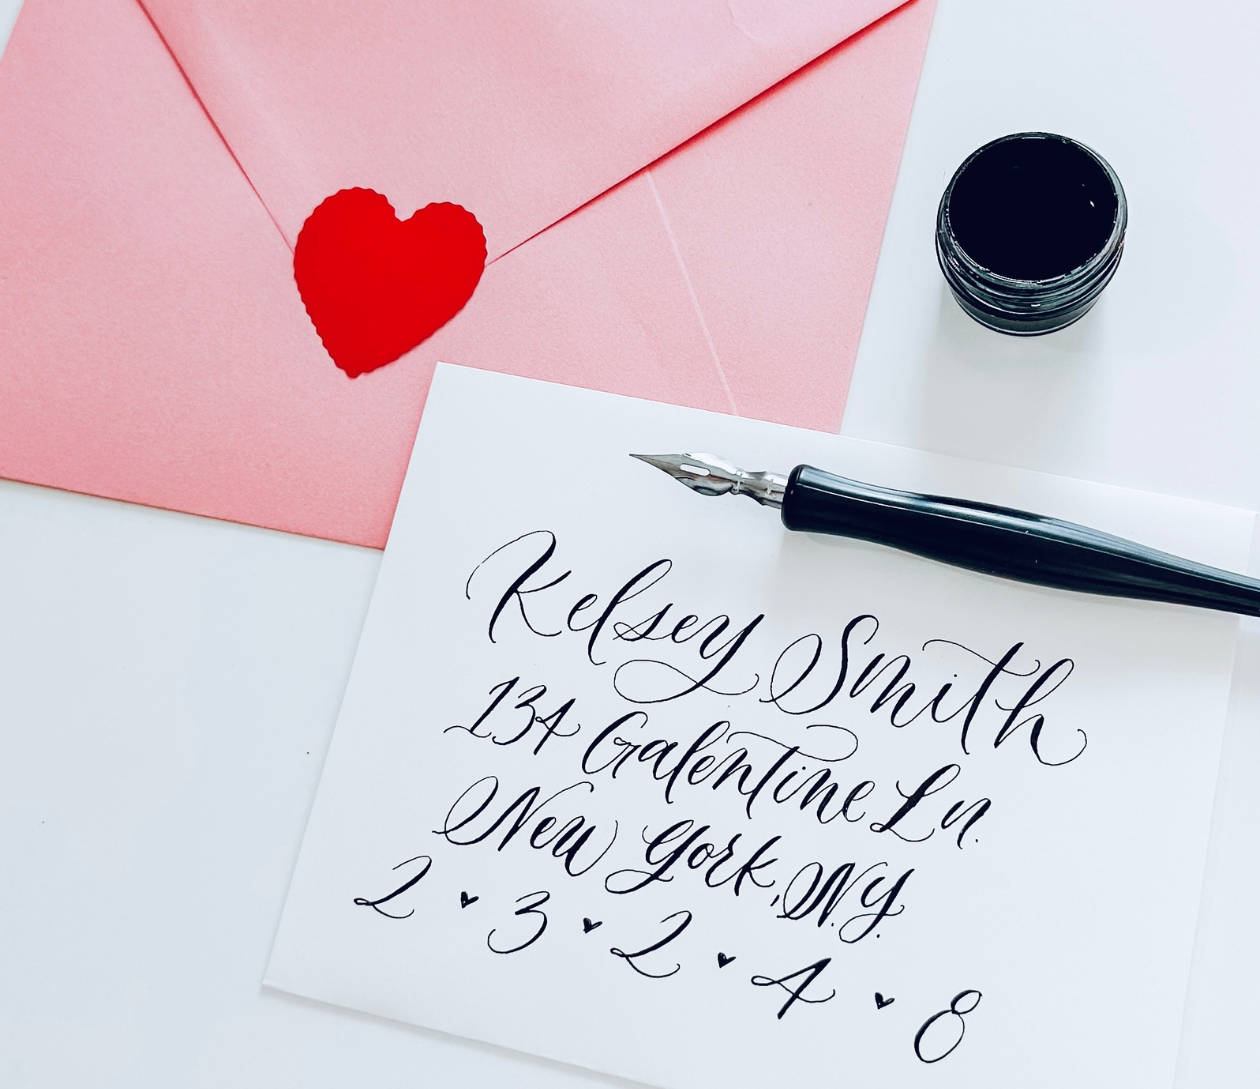 Kelsey Smith
134 Galentine Ln.
New York, N.Y.
2 ♥ 3 ♥ 2 ♥ 4 ♥ 8